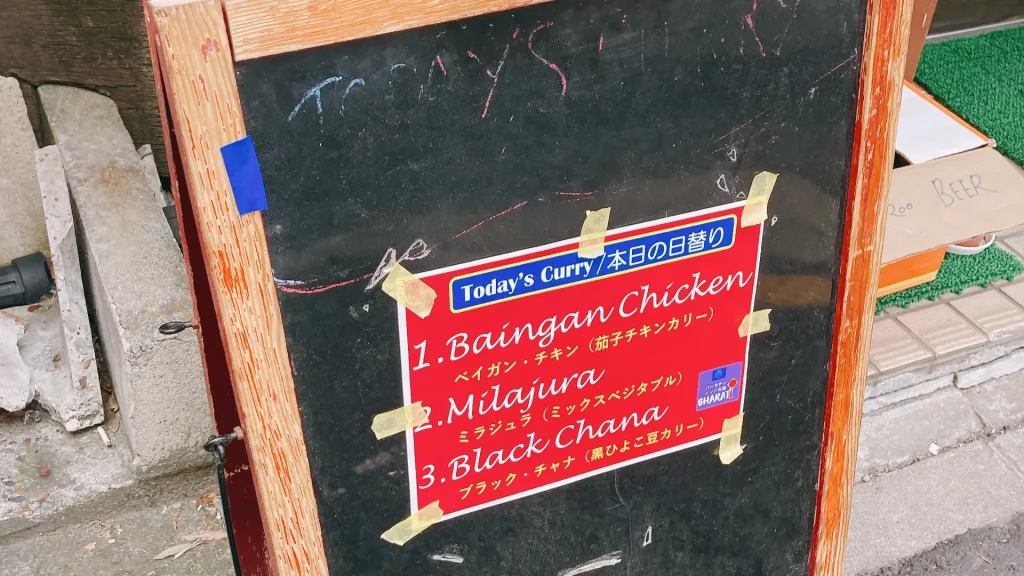 TODAY'S
Today's Curry/本日の日替り
1.Baingan Chicken
ベイガン・チキン（茄子チキンカリー）
2.Milajura
ミラジュラ（ミックスベジタブル）
3.Black Chana
ブラック・チャナ（黒ひよこ豆カリー）
BHARATI
200 BEER